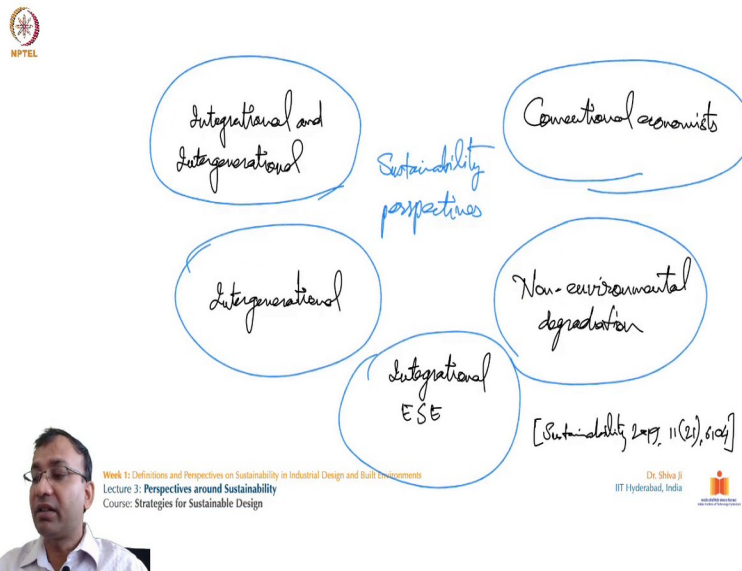 NPTEL
Integrational and
Intergenerational
Conventional economists
Sustainability
perspectives
Intergenerational
Non-environmental
degradation
Integrational
ESE
[Sustainability 2019, 11(21), 6104]
Week 1: Definitions and Perspectives on Sustainability in Industrial Design and Built Environments
Lecture 3: Perspectives around Sustainability
Course: Strategies for Sustainable Design
Dr. Shiva Ji
IIT Hyderabad, India